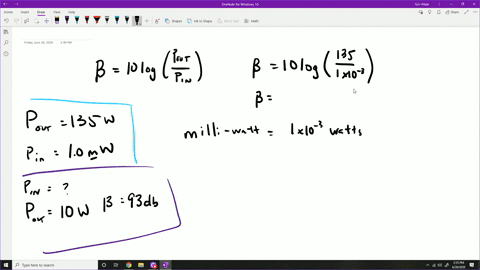 OneNote for Windows 10
Draw
View
Help
Ink to Shape
Ink to Text
Share
Friday, June 26, 2020
β = 10 log (Pout/Pin)
β = 10 log (135/1×10⁻³)
β =
Pout = 135 W
Pin = 1.0 mW
milli-watt = 1×10⁻³ watts
PIN = ?
Pout = 10 W β = 93 db
Type here to search